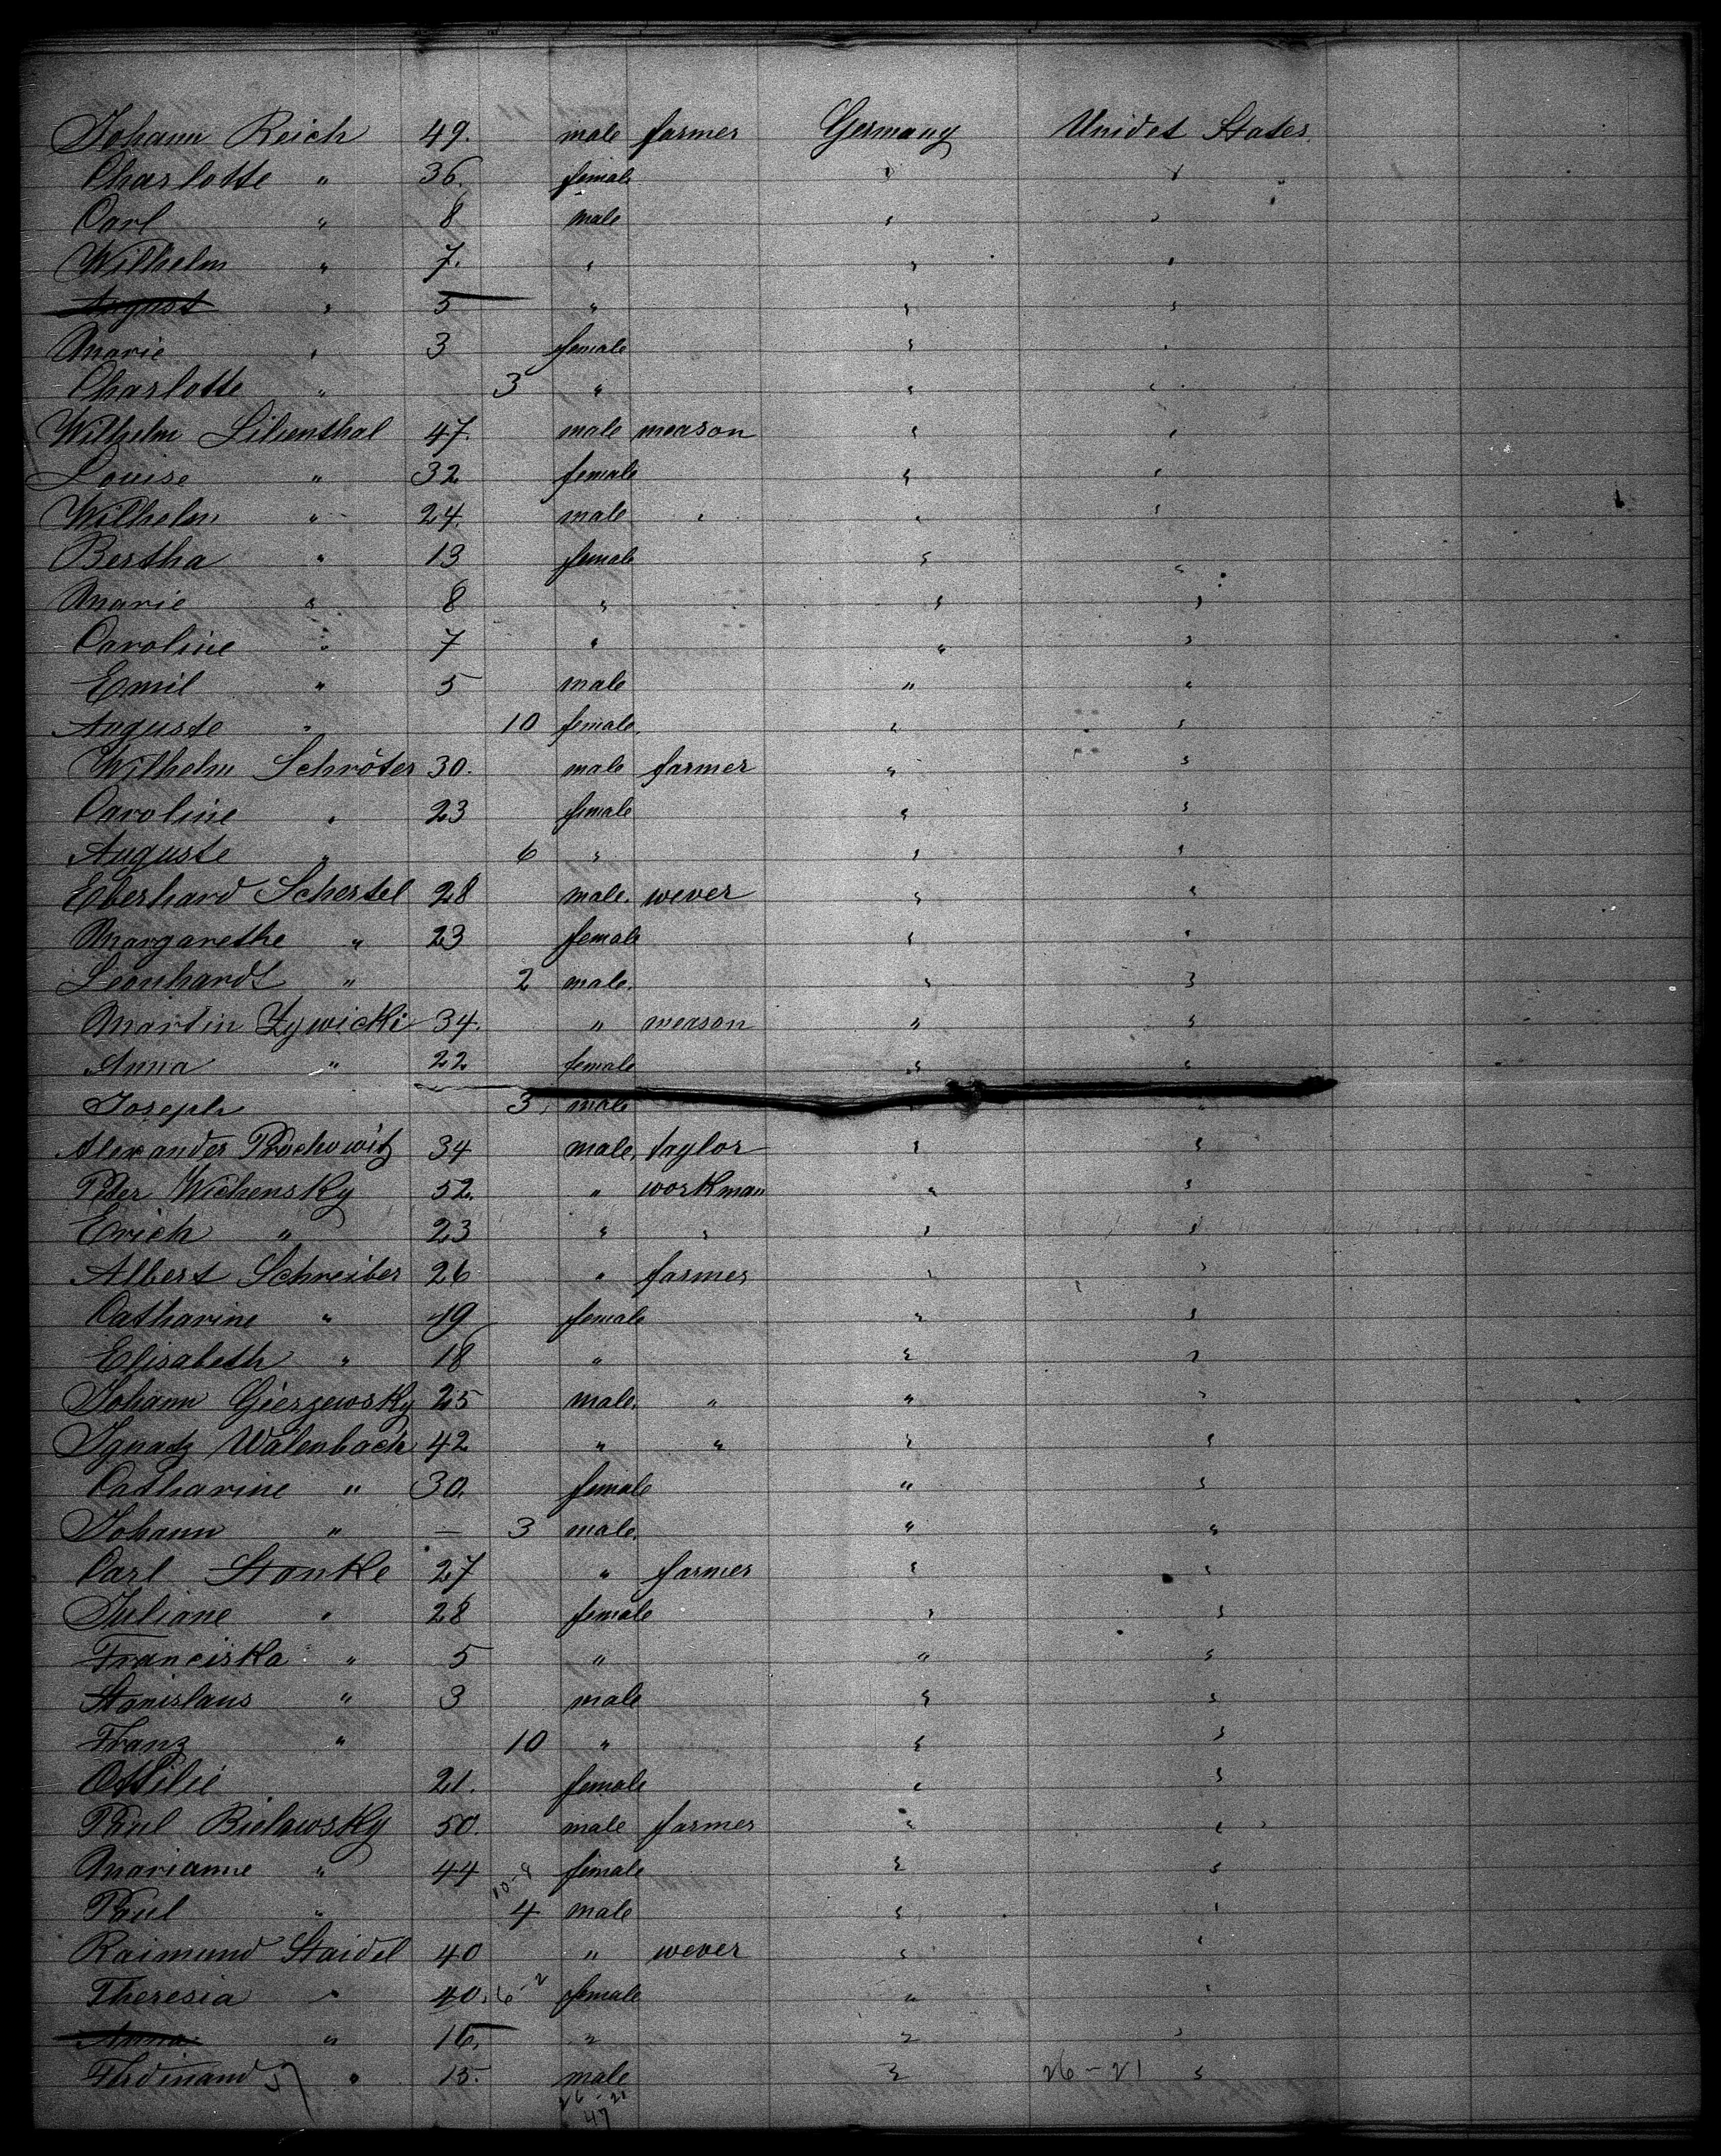 Johann Reich 49. male farmer Germany Unidet States.
Charlotte " 36. female " "
Carl " 8 male " "
Wilhelm " 7. " " "
August " 5 " " "
Marie " 3 female " "
Charlotte " 3 " " "
Wilhelm Lilienthal 47. male meason " "
Louise " 32 female " "
Wilhelm " 24. male " " "
Bertha " 13 female " "
Marie " 8 " " "
Caroline " 7 " " "
Emil " 5 male " "
Auguste " 10 female. " "
Wilhelm Schröter 30. male farmer " "
Caroline " 23 female " "
Auguste " 6 " " "
Eberhard Schertel 28 male. wever " "
Margarethe " 23 female " "
Leonhardt " 2 male. " "
Martin Zywicki 34. " meason " "
Anna " 22 female " "
Joseph 3 male " "
Alexander Prochowitz 34 male, taylor " "
Peter Wichensky 52. " workman " "
Erich " 23 " " " "
Albert Schreiber 26 " farmer " "
Catharine " 49 female " "
Elisabeth " 18 " " "
Johann Gierzewsky 25 male. " " "
Ignatz Walenbach 42 " " " "
Catharine " 30. female " "
Johann " — 3 male. " "
Carl Stanke 27 " farmer " "
Juliane " 28 female " "
Franciska " 5 " " "
Stanislaus " 3 male " "
Franz " 10 " " "
Ottilie 21. female " "
Paul Bielawsky 50. male farmer " "
Marianne " 44 female " "
10-8
Paul " 4 male " "
Raimund Staidel 40 " wever " "
Theresia " 40. 6-2 female " "
Anna " 16. " " "
Ferdinand " 15. male " 26-21 "
26-21
47